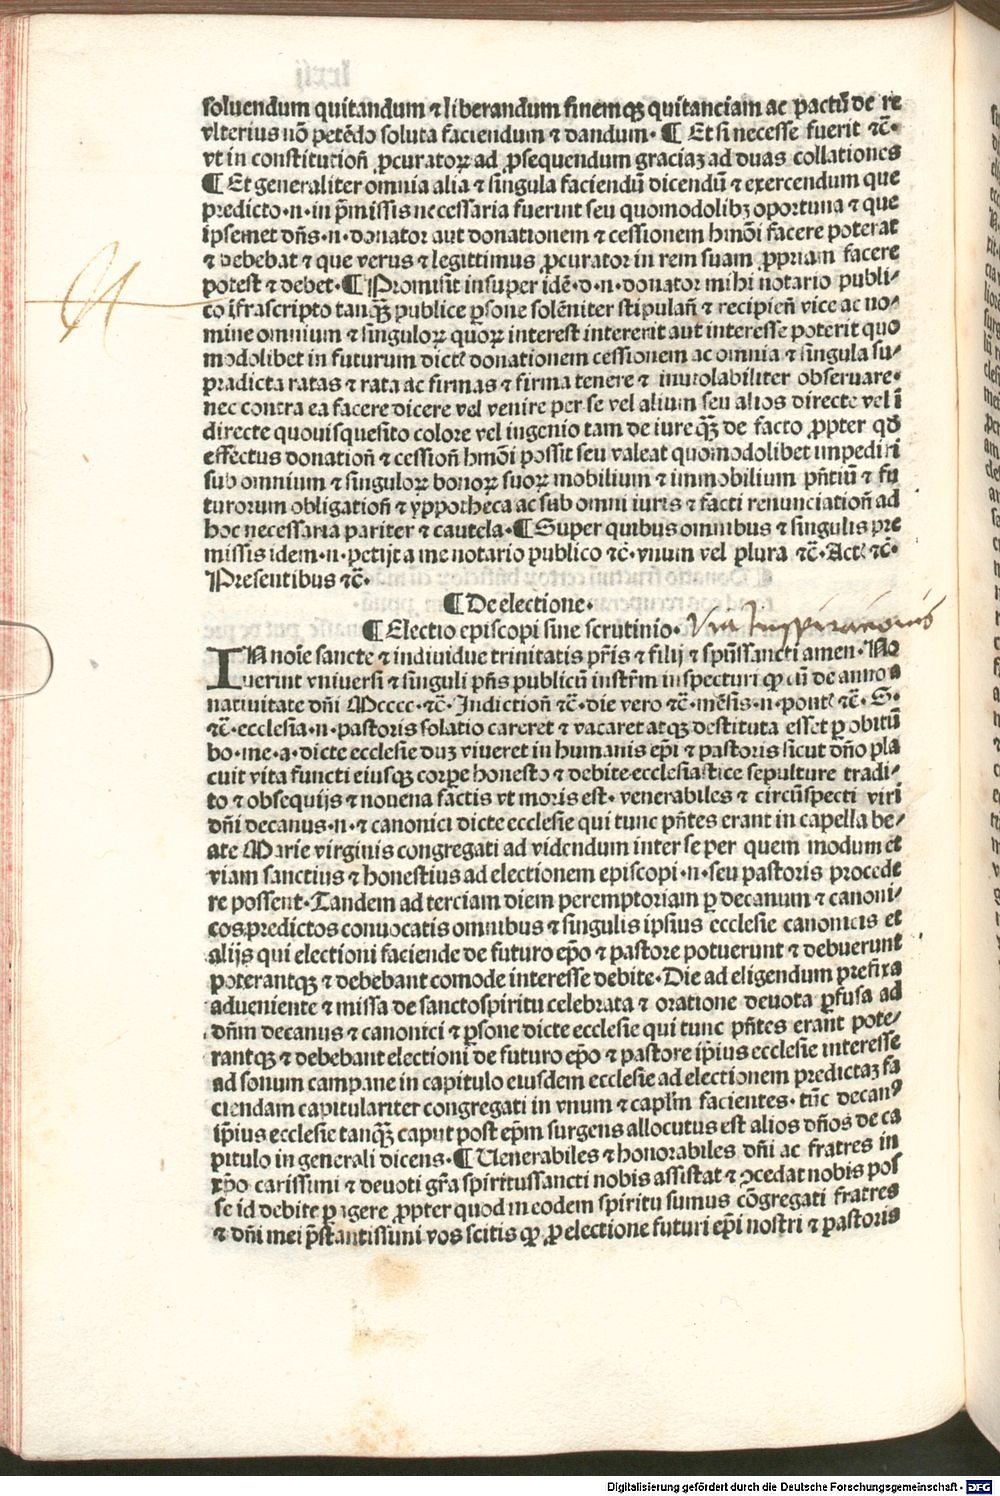 soluendum quitandum ⁊ liberandum finemqꝫ quitanciam ac pactū de re
vlterius nō petēdo soluta faciendum ⁊ dandum. ¶ Et si necesse fuerit ⁊c̄.
vt in constitutioñ ꝓcuratoꝝ ad ꝓsequendum graciaꝫ ad duas collationes
¶ Et generaliter omnia alia ⁊ singula faciendū dicendū ⁊ exercendum que
predicto.n.in p̄missis necessaria fuerint seu quomodolibꝫ oportuna ⁊ que
ipsemet dn̄s.n.donator aut donationem ⁊ cessionem hmōi facere poterat
⁊ debebat ⁊ que verus ⁊ legittimus ꝓcurator in rem suam ꝓpriam facere
potest ⁊ debet. ¶ Promisit insuper idē.d.n.donator mihi notario publi/
co īfrascripto tanqꝫ̄ publice ꝑsone solēniter stipulañ ⁊ recipieñ vice ac no/
mine omnium ⁊ singuloꝝ quoꝝ interest intererit aut interesse poterit quo
modolibet in futurum dictā donationem cessionem ac omnia ⁊ singula su/
pradicta ratas ⁊ rata ac firmas ⁊ firma tenere ⁊ inuiolabiliter obseruare.
nec contra ea facere dicere vel venire per se vel alium seu alios directe vel ī
directe quouisquesito colore vel ingenio tam de iure qꝫ̄ de facto ꝓpter qd̄
effectus donatioñ ⁊ cessioñ hmōi possit seu valeat quomodolibet impediri
sub omnium ⁊ singuloꝝ bonoꝝ suoꝝ mobilium ⁊ immobilium pn̄tiū ⁊ fu
turorum obligatioñ ⁊ yppotheca ac sub omni iuris ⁊ facti renunciatioñ ad
hoc necessaria pariter ⁊ cautela. ¶ Super quibus omnibus ⁊ singulis pre
missis idem.n.petijt a me notario publico ⁊c̄.vnum vel plura ⁊c̄.Actā ⁊c̄.
Presentibus ⁊c̄.
¶ De electione.
¶ Electio episcopi sine scrutinio. Via Inspirationis
IN noīe sancte ⁊ indiuidue trinitatis pr̄is ⁊ filij ⁊ spūssancti amen.No
uerint vniuersi ⁊ singuli pn̄s publicū instr̄m inspecturi ꝙ cū de anno a
natiuitate dn̄i Mcccc.⁊c̄.Indictioñ ⁊c̄.die vero ⁊c̄.mēsis.n.pont̄ ⁊c̄.S.
⁊c̄.ecclesia.n.pastoris solatio careret ⁊ vacaret atqꝫ destituta esset ꝑ obitū
bo.me.a.dicte ecclesie duꝫ viueret in humanis ep̄i ⁊ pastoris sicut dn̄o pla
cuit vita functi eiusqꝫ corpe honesto ⁊ debite ecclesiastice sepulture tradi/
to ⁊ obsequijs ⁊ nouena factis vt moris est. venerabiles ⁊ circūspecti viri
dn̄i decanus.n.⁊ canonici dicte ecclesie qui tunc pn̄tes erant in capella be/
ate Marie virginis congregati ad videndum inter se per quem modum et
viam sanctius ⁊ honestius ad electionem episcopi.n.seu pastoris procede
re possent.Tandem ad terciam diem peremptoriam ꝑ decanum ⁊ canoni/
cos predictos conuocatis omnibus ⁊ singulis ipsius ecclesie canonicis et
alijs qui electioni faciende de futuro ep̄o ⁊ pastore potuerunt ⁊ debuerunt
poterantqꝫ ⁊ debebant comode interesse debite.Die ad eligendum prefixa
adueniente ⁊ missa de sanctospiritu celebrata ⁊ oratione deuota ꝑfusa ad
dn̄m decanus ⁊ canonici ⁊ ꝑsone dicte ecclesie qui tunc pn̄tes erant pote/
rantqꝫ ⁊ debebant electioni de futuro ep̄o ⁊ pastore ip̄ius ecclesie interesse
ad sonum campane in capitulo eiusdem ecclesie ad electionem predictaꝫ fa
ciendam capitulariter congregati in vnum ⁊ capl̄m facientes.tūc decanꝰ
ip̄ius ecclesie tanqꝫ̄ caput post ep̄m surgens allocutus est alios dn̄os de ca
pitulo in generali dicens. ¶ Uenerabiles ⁊ honorabiles dn̄i ac fratres in
xp̄o carissimi ⁊ deuoti gr̄a spiritussancti nobis assistat ⁊ ꝯcedat nobis pos
se id debite ꝑagere ꝓpter quod in eodem spiritu sumus cōgregati fratres
⁊ dn̄i mei p̄stantissimi vos scitis ꝙ ꝓ electione futuri ep̄i nostri ⁊ pastoris
Digitalisierung gefördert durch die Deutsche Forschungsgemeinschaft - DFG